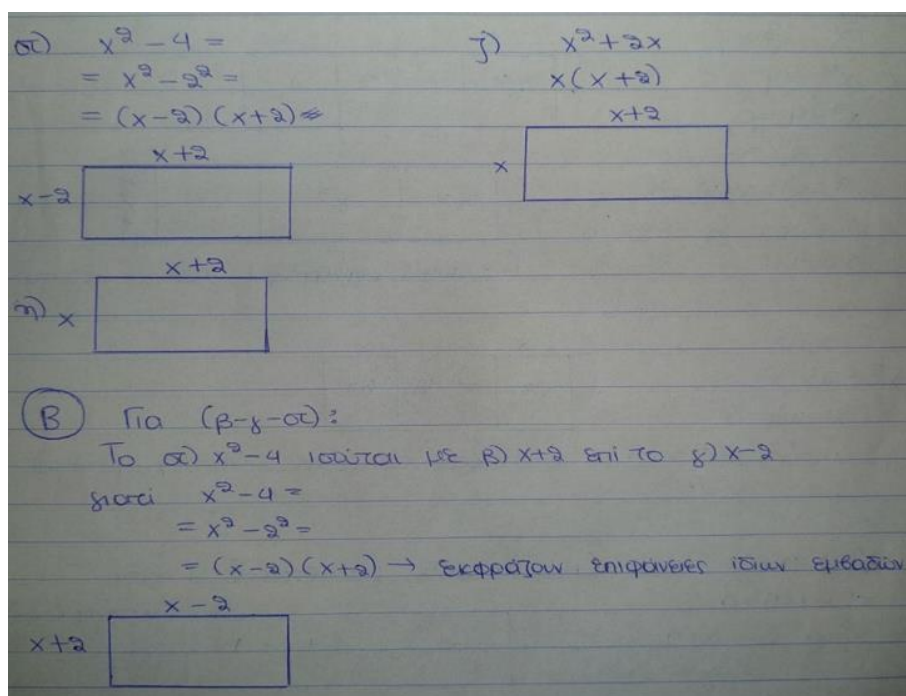 στ) x² - 4 =
= x² - 2² =
= (x-2) (x+2) =
x+2
x-2
ζ) x² + 2x
x(x+2)
x+2
x
x+2
η) x
Β Για (β-γ-στ):
Το στ) x² - 4 ισούται με β) x+2 επί το γ) x-2
γιατί x² - 4 =
= x² - 2² =
= (x-2) (x+2) → εκφράζουν επιφάνειες ίδιων εμβαδών
x - 2
x+2